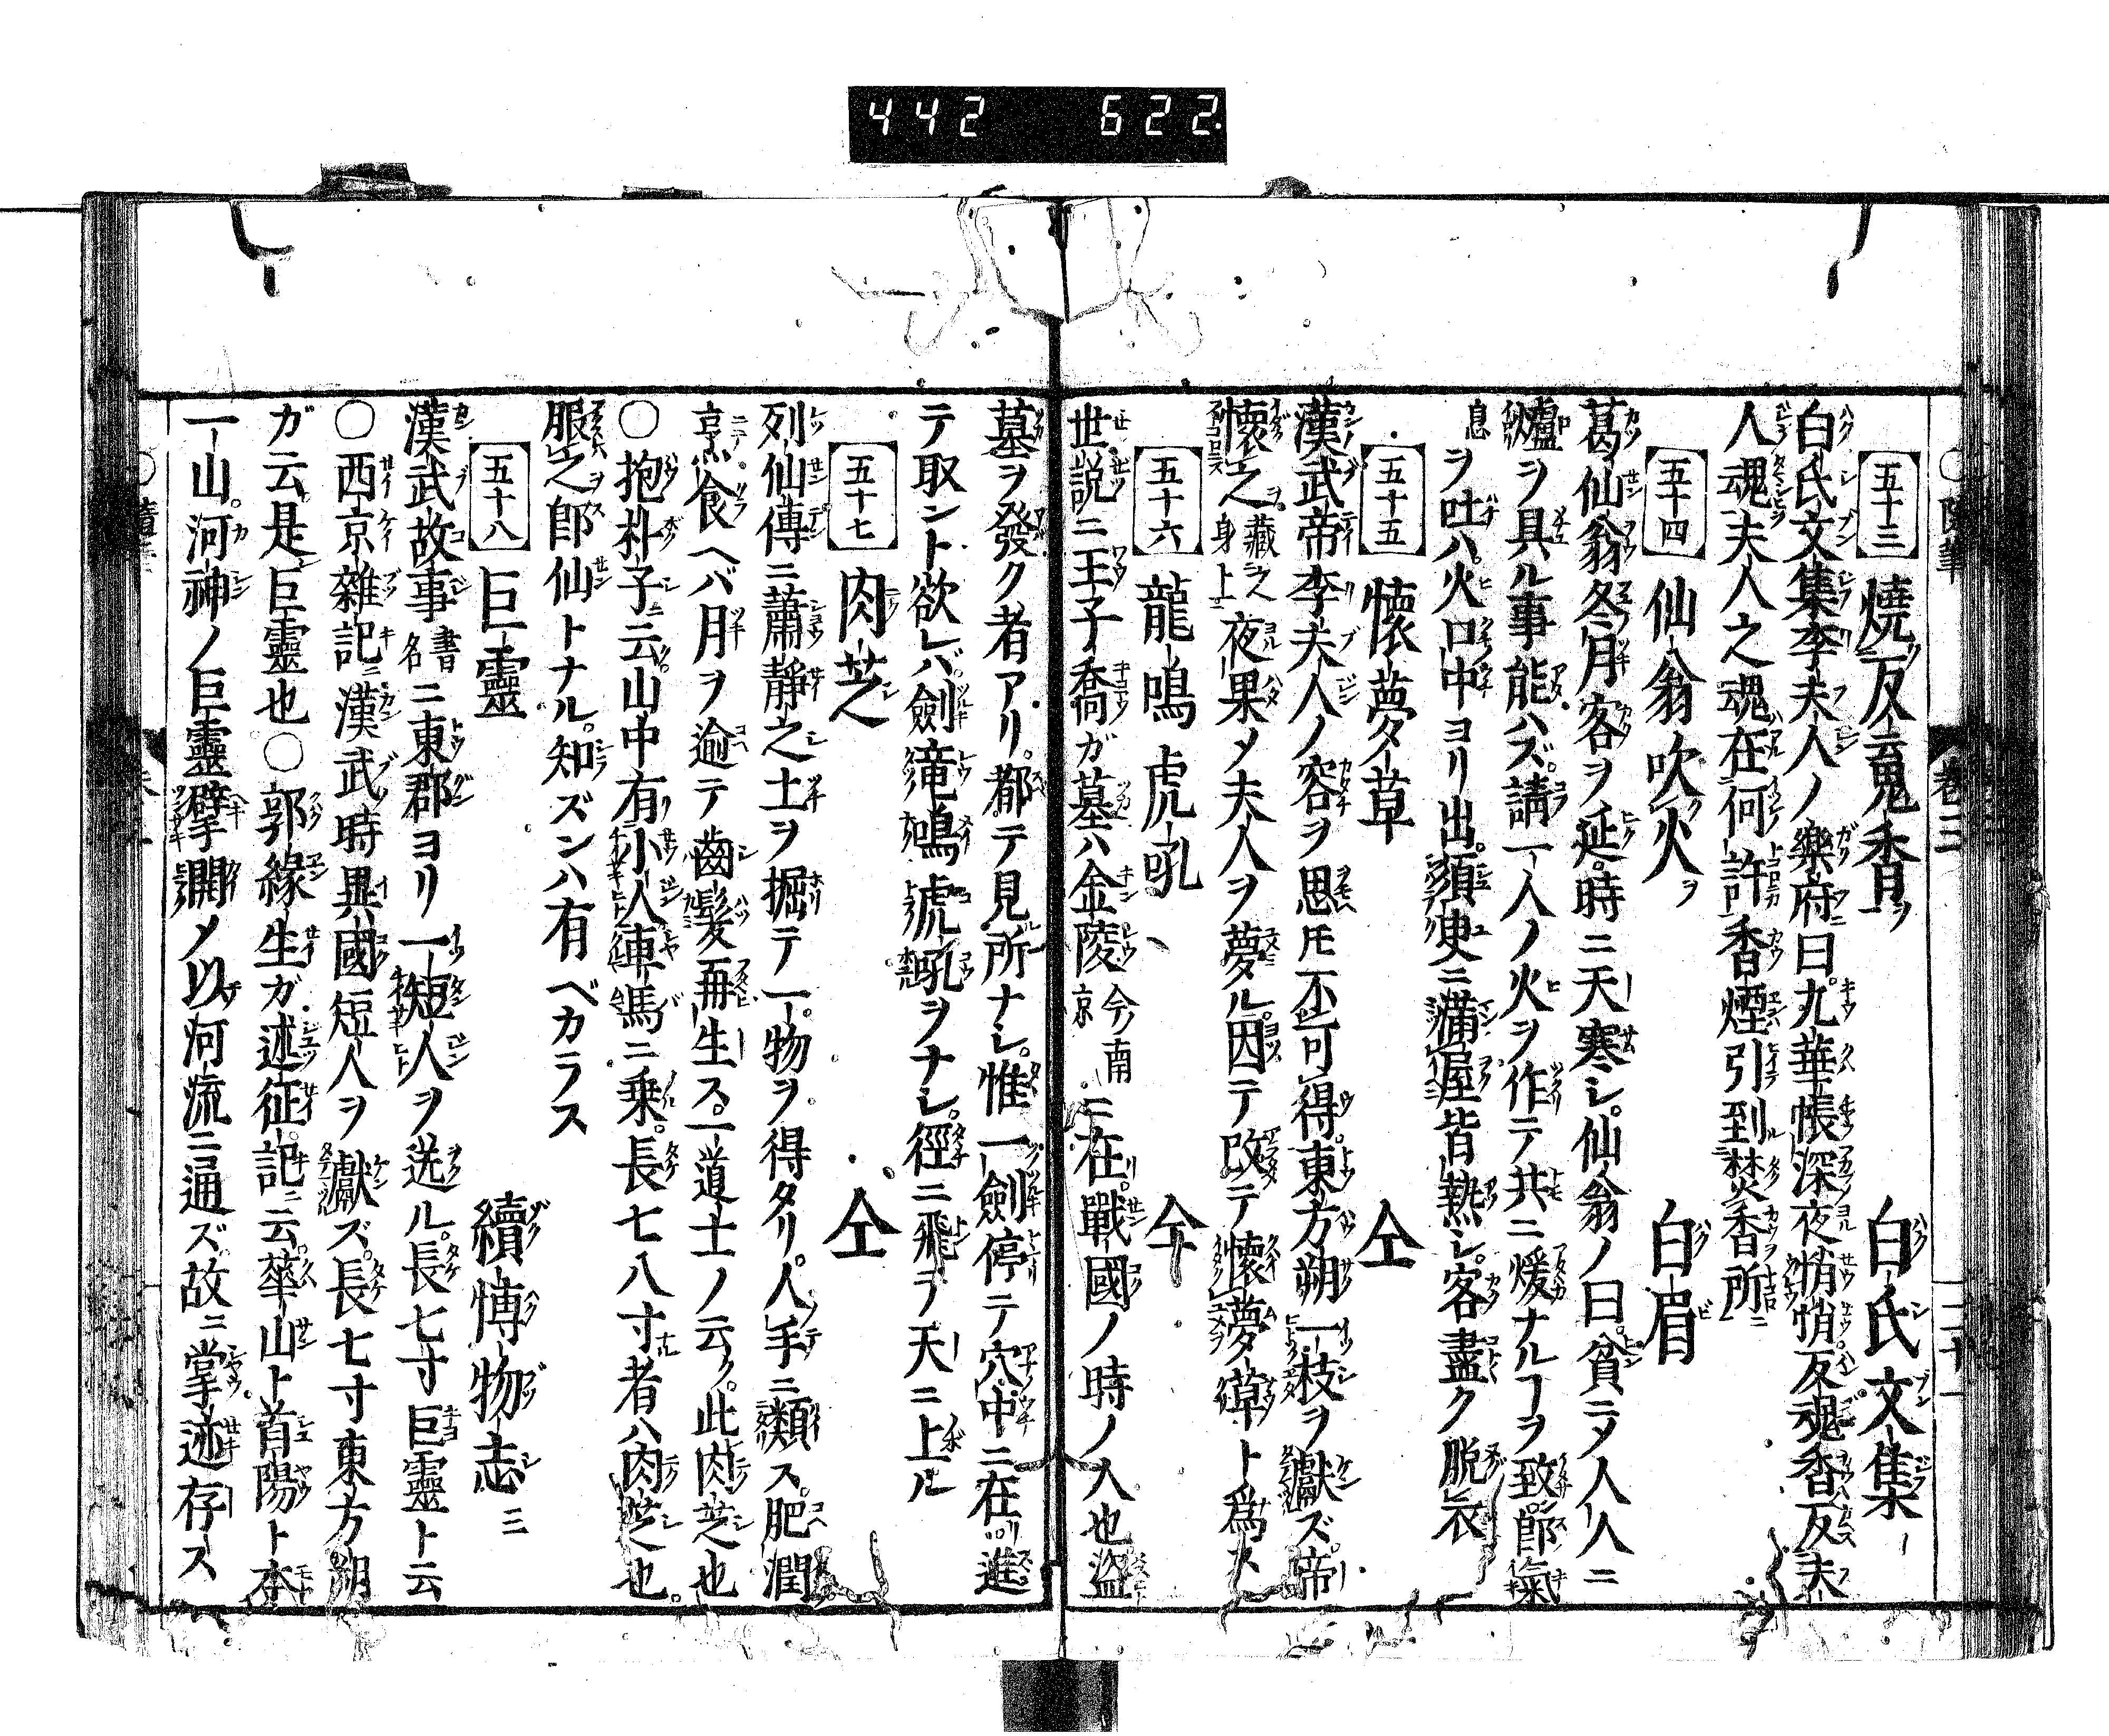 442 622.
卷三
五十三 燒反魂香ヲ 白氏文集
白氏文集李夫人ノ樂府曰九華帳深夜悄悄反魂香反夫
人魂夫人之魂在何許香煙引到焚香所ニ
五十四 仙翁吹火ヲ 白眉
葛仙翁冬月客ヲ延時ニ天寒シ仙翁ノ曰貧ニメ人人ニ
爐ヲ具ル事能ハズ請一人ノ火ヲ作テ共ニ煖ナルヿヲ致即氣
息ヲ吐ハ火口中ヨリ出須臾ニ滿屋皆熱シ客盡ク脱衣
五十五 懷夢草 仝
漢武帝李夫人ノ容ヲ思厇不可得東方朔一枝ヲ獻ズ帝
懷之藏之身上ニ夜果メ夫人ヲ夢ル因テ改テ懷夢草ト爲ス
五十六 龍鳴虎吼 仝
世説ニ王子喬ガ墓ハ金陵今ノ南京ニ在戰國ノ時ノ人也盜
墓ヲ發ク者アリ都テ見所ナシ惟一劍停テ穴中ニ在リ進
テ取ント欲レバ劍竜鳴虓吼ヲナシ徑ニ飛ヲ天ニ上ル
五十七 肉芝 仝
列仙傳ニ蕭靜之土ヲ掘テ一物ヲ得タリ人手ニ類ス肥潤
烹食ヘバ月ヲ逾テ齒髮再生ス一道士ノ云ク此肉芝也
〇抱朴子ニ云山中有小人車馬ニ乗長七八寸者ハ肉芝也
服之即仙トナル知ズンハ有ベカラス
五十八 巨靈 續博物志 三
漢武故事書名ニ東郡ヨリ一短人ヲ送ル長七寸巨靈ト云
〇西京雜記ニ漢武時異國短人ヲ獻ズ長七寸東方朔
ガ云是巨靈也〇郭緣生ガ述征記ニ云華山ト首陽ト本
一山河神ノ巨靈擘開メ以河流ニ通ズ故ニ掌迹存ス